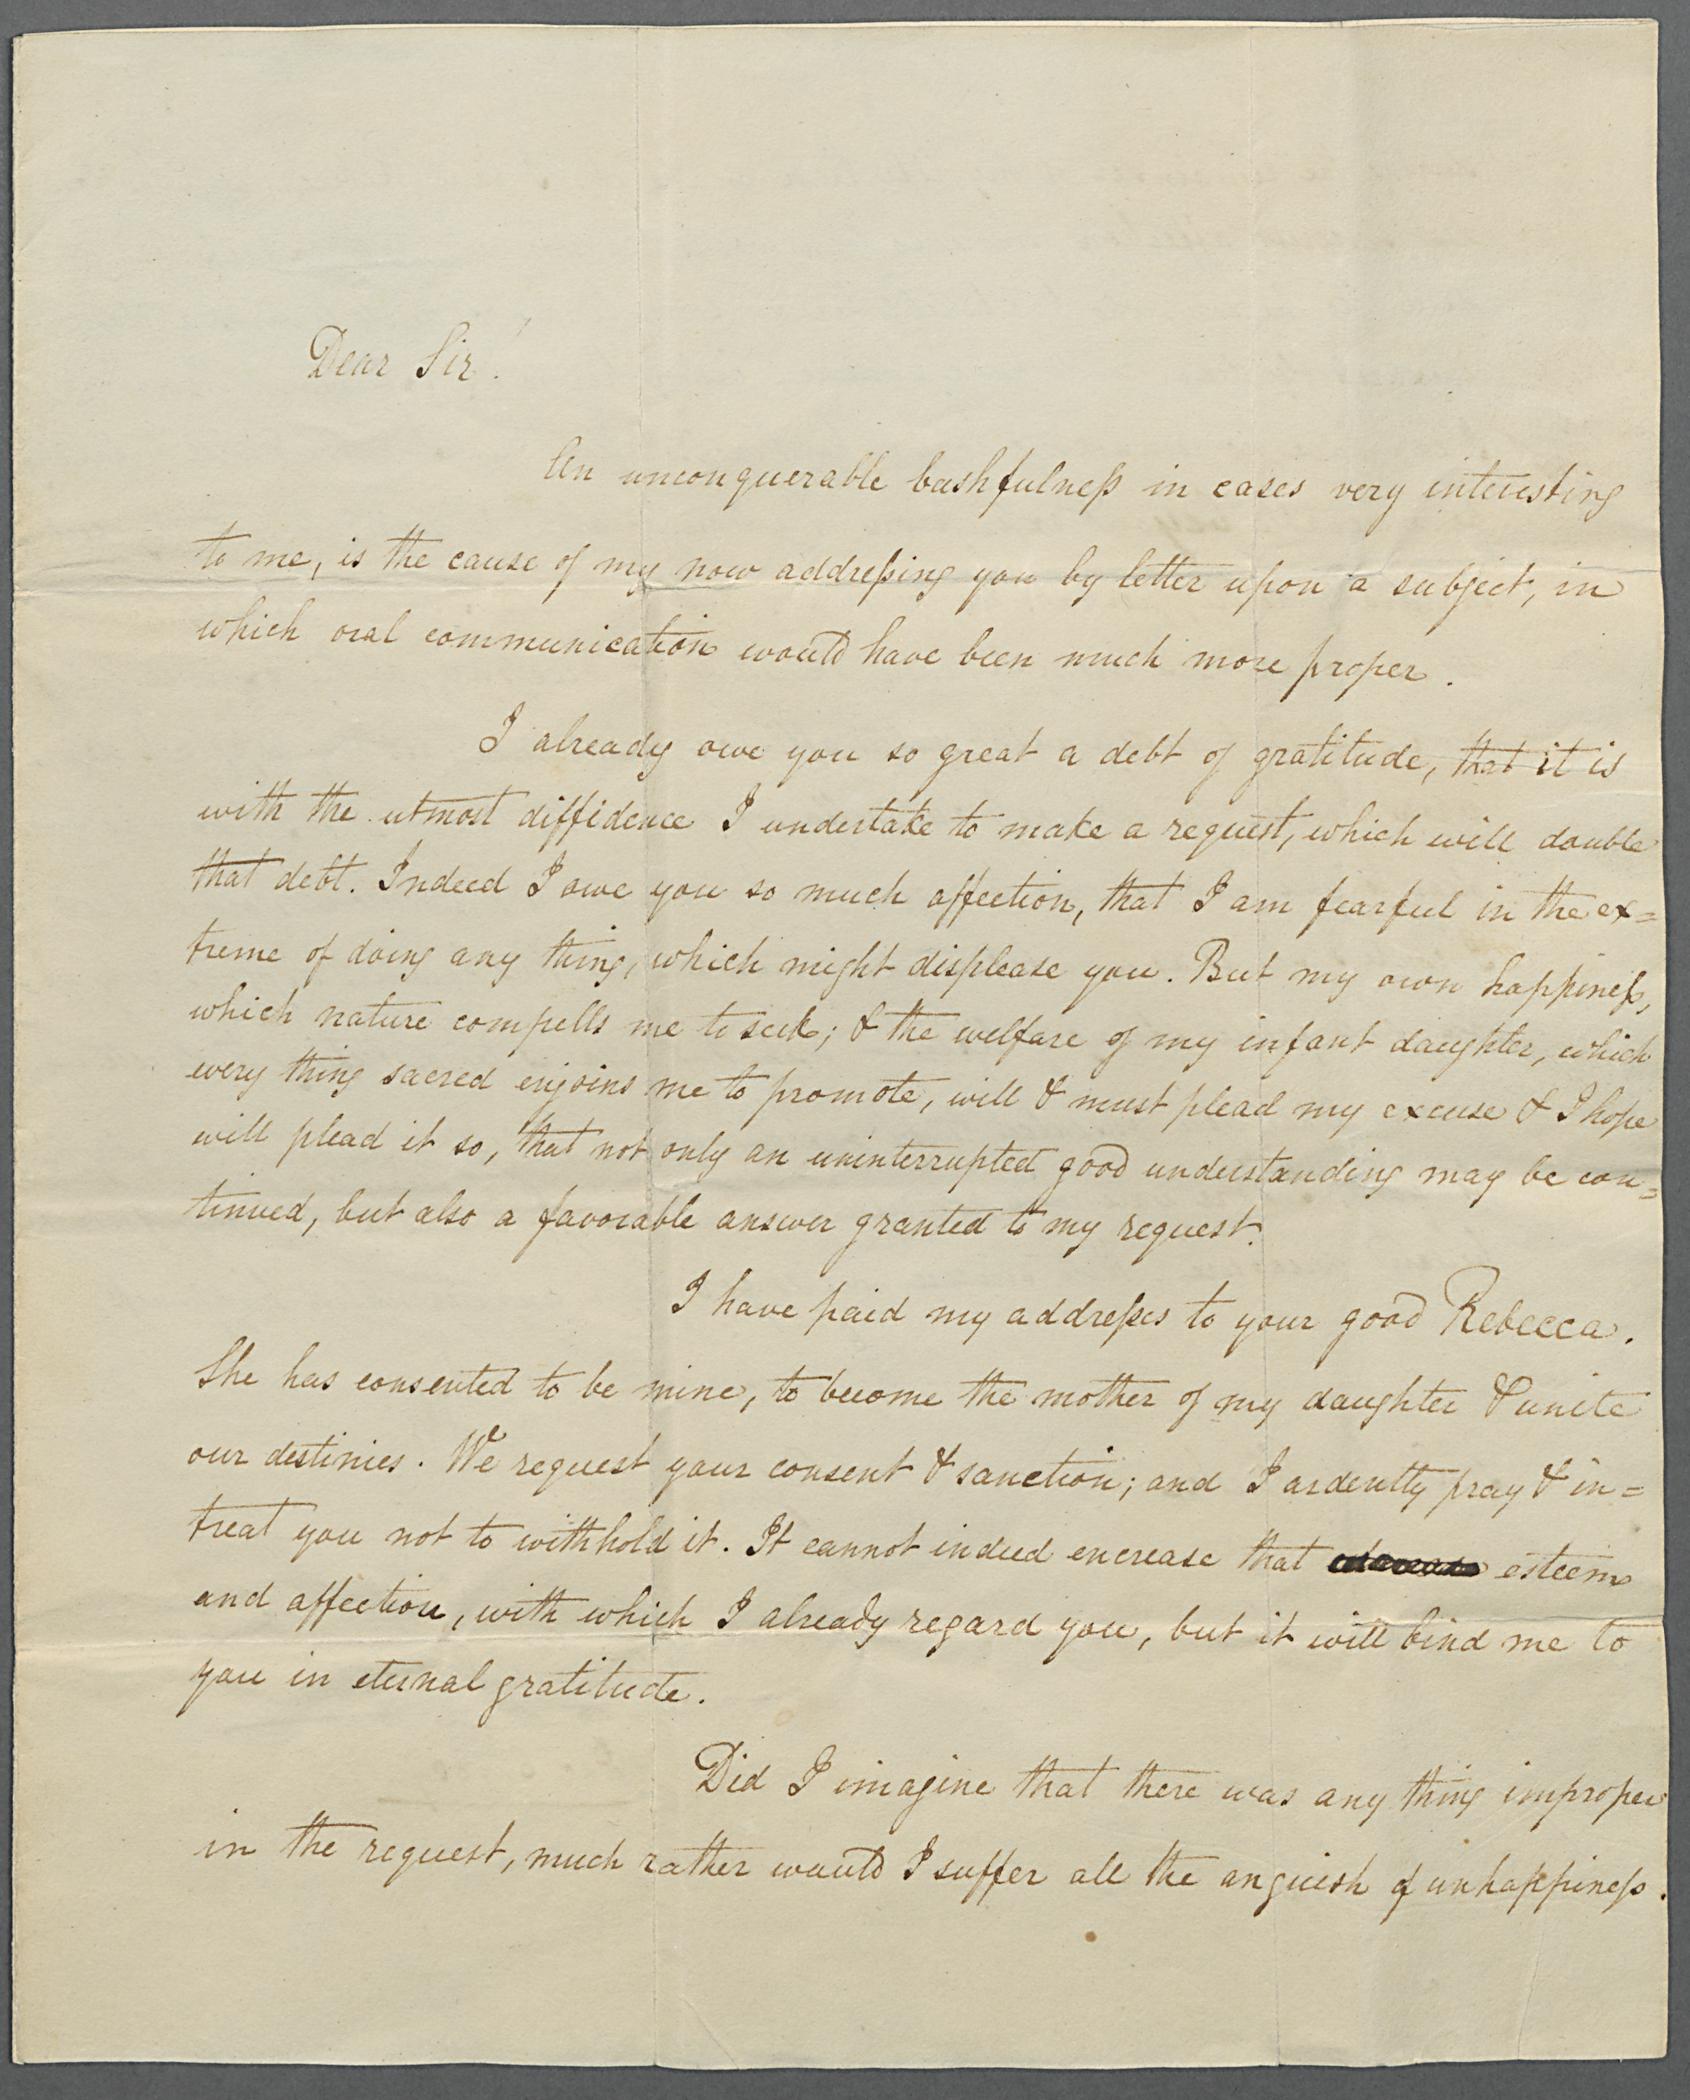 Dear Sir!
An unconquerable bashfulness in cases very interesting
to me, is the cause of my now addressing you by letter upon a subject, in
which oral communication would have been much more proper.
I already owe you so great a debt of gratitude, that it is
with the utmost diffidence I undertake to make a request, which will double
that debt. Indeed I owe you so much affection, that I am fearful in the ex=
treme of doing any thing, which might displease you. But my own happiness,
which nature compells me to seek; & the welfare of my infant daughter, which
every thing sacred enjoins me to promote, will & must plead my excuse & I hope
will plead it so, that not only an uninterrupted good understanding may be con=
tinued, but also a favorable answer granted to my request.
I have paid my addresses to your good Rebecca.
She has consented to be mine, to become the mother of my daughter & unite
our destinies. We request your consent & sanction; and I ardently pray & in=
treat you not to withhold it. It cannot indeed encrease that esteem
and affection, with which I already regard you, but it will bind me to
you in eternal gratitude.
Did I imagine that there was any thing improper
in the request, much rather would I suffer all the anguish of unhappiness.